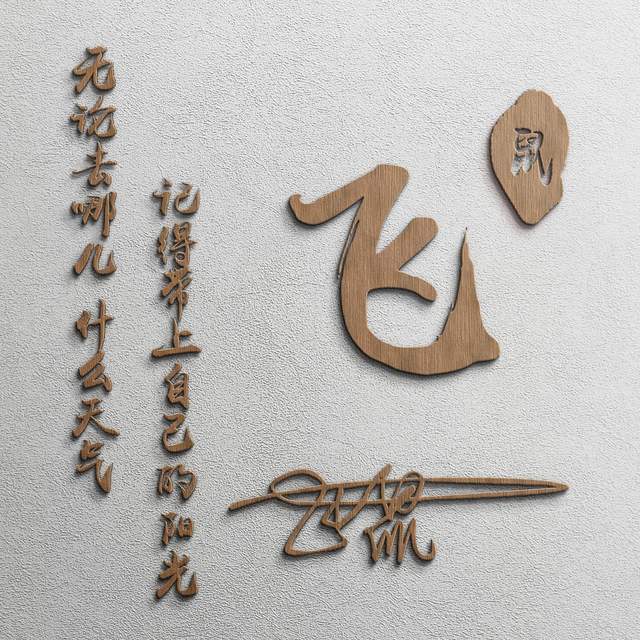 无论去哪儿 什么天气
记得带上自己的阳光
飞
鼠